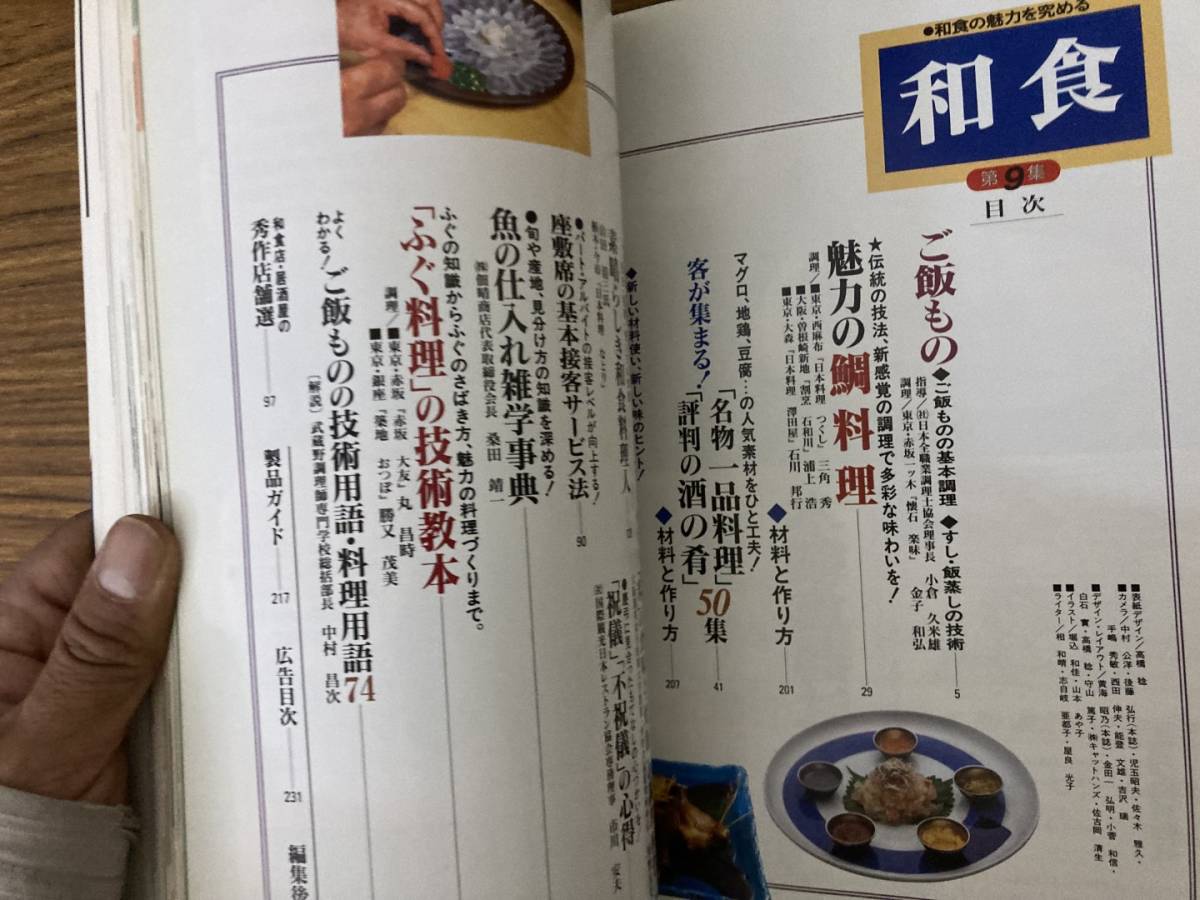 ●和食の魅力を究める
和食
第9集
目次
ご飯もの
◆ご飯ものの基本調理 ◆すし・飯蒸しの技術
指導/㈳日本全職業調理士協会理事長 小倉 久米雄
調理/東京・赤坂一ッ木『懐石 楽味』 金子 和弘
5
★伝統の技法、新感覚の調理で多彩な味わいを!
魅力の鯛料理
29
調理/■東京・西麻布『日本料理 つくし』三角 秀
■大阪・曽根崎新地『割烹 石和川』浦上 浩
■東京・大森『日本料理 澤田屋』石川 邦行
◆材料と作り方
201
マグロ、地鶏、豆腐…の人気素材をひと工夫!
客が集まる!「名物一品料理」「評判の酒の肴」50集
41
◆材料と作り方
207
■表紙デザイン/高橋 稔
■カメラ/中村 公洋・後藤 弘行(本誌)・児玉昭夫・佐々木 雅久・
手嶋 秀敏・西田 伸夫・能登 文雄・吉沢 璃
■デザイン・レイアウト/黄海 昭乃(本誌)・金田一 弘明・小菅 和信・
白石 實・高橋 稔・守山 篤子・㈱キャットハンズ・佐古岡 清生
■イラスト/堀込 和佳・山本 あや子
■ライター/相 和晴・志自岐 亜都子・屋良 光子
◆新しい材料使い、新しい味のヒント!
●パート・アルバイトの接客レベルが向上する!
座敷席の基本接客サービス法
90
「祝儀」「不祝儀」の心得
㈳国際観光日本レストラン協会専務理事
●旬や産地、見分け方の知識を深める!
魚の仕入れ雑学事典
商店代表取締役会長 桑田 靖一
ふぐの知識からふぐのさばき方、魅力の料理づくりまで。
「ふぐ料理」の技術教本
調理/■東京・赤坂『赤坂 大友』丸 昌時
■東京・銀座『築地 おつぼ』勝又 茂美
よくわかる!
ご飯ものの技術用語・料理用語74
〔解説〕武蔵野調理師専門学校総括部長 中村 昌次
和食店・居酒屋の
秀作店舗選
97
製品ガイド
217
広告目次
231
編集後